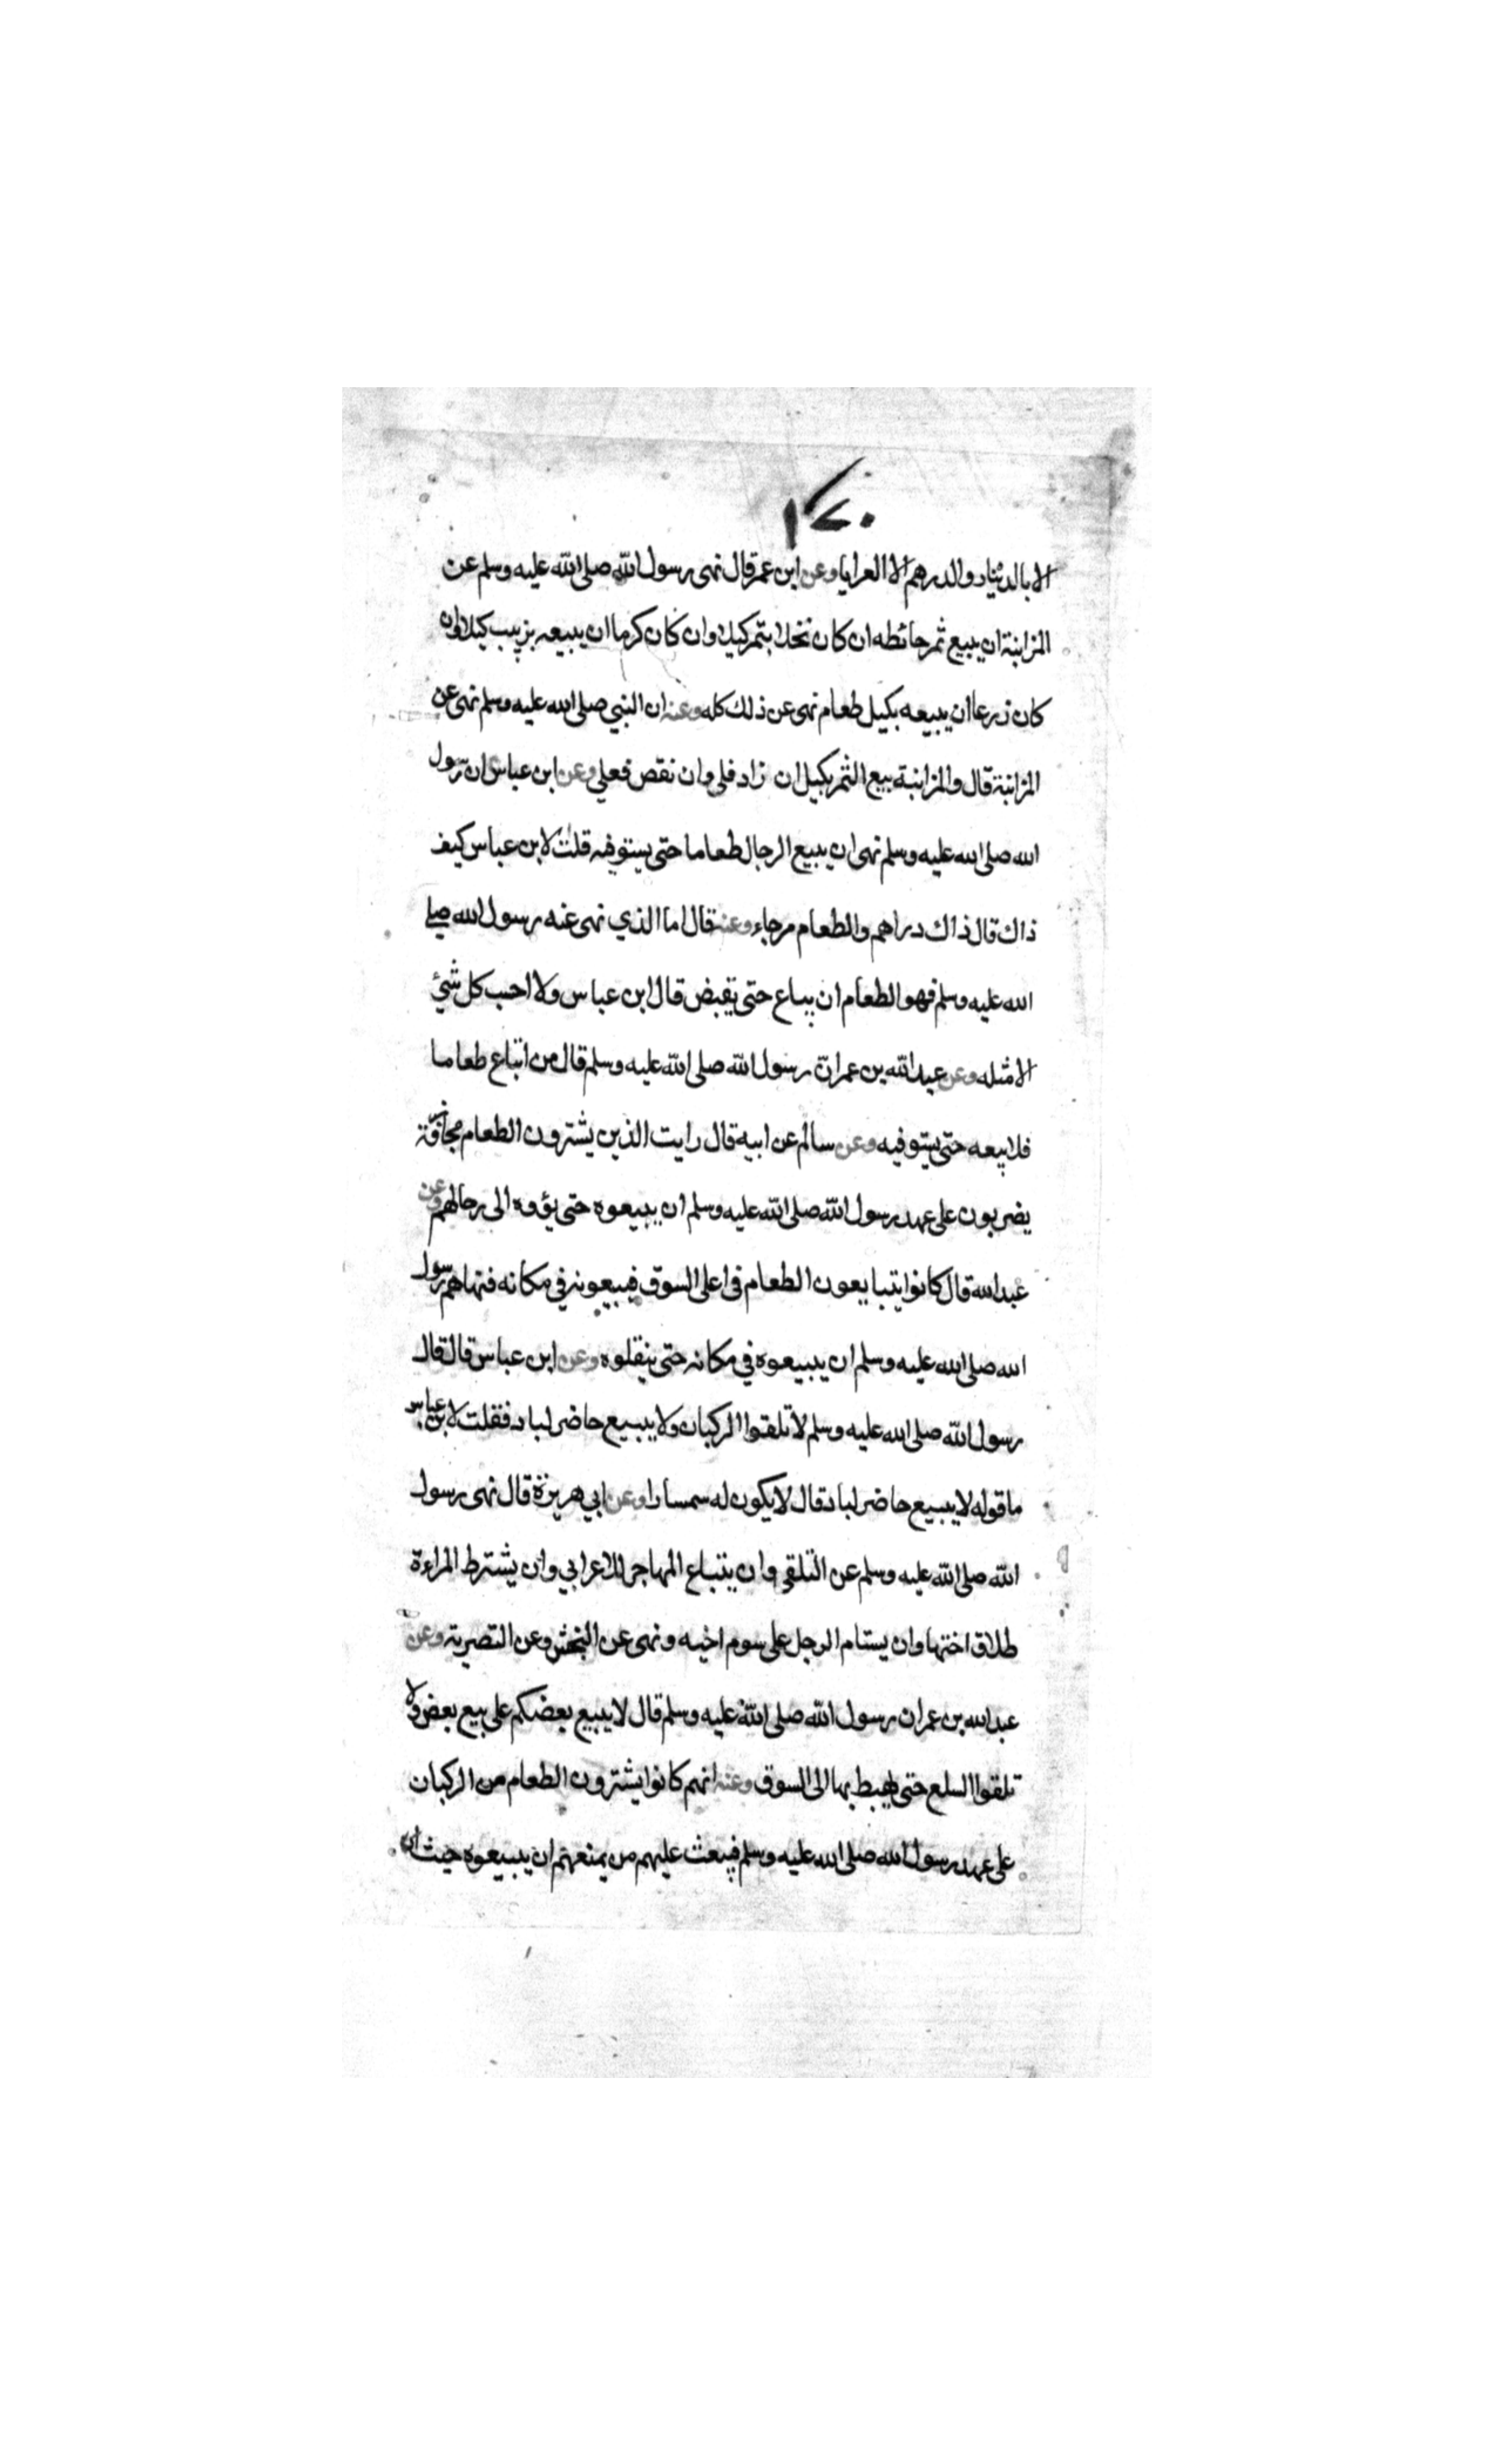 ١٧٠
الا بالدينار والدرهم الا العرايا وعن ابن عمر قال نهى رسول الله صلى الله عليه وسلم عن
المزابنة ان يبيع ثمر حائطه ان كان نخلا بتمر كيلا وان كان كرما ان يبيعه بزبيب كيلا وان
كان زرعا ان يبيعه بكيل طعام نهى عن ذلك كله وعنه ان النبي صلى الله عليه وسلم نهى عن
المزابنة قال والمزابنة بيع الثمر بكيل ان زاد فلي وان نقص فعلي وعن ابن عباس ان رسول
الله صلى الله عليه وسلم نهى ان يبيع الرجال طعاما حتى يستوفيه قلت لابن عباس كيف
ذاك قال ذاك دراهم والطعام مرجاء وعنه قال اما الذي نهى عنه رسول الله صلى
الله عليه وسلم فهو الطعام ان يباع حتى يقبض قال ابن عباس ولا احب كل شئ
الا مثله وعن عبد الله بن عمر ان رسول الله صلى الله عليه وسلم قال من ابتاع طعاما
فلا يبعه حتى يستوفيه وعن سالم عن ابيه قال رايت الذين يشترون الطعام مجازفة
يضربون على عهد رسول الله صلى الله عليه وسلم ان يبيعوه حتى يؤوه الى رحالهم وعن
عبد الله قال كانوا يتبايعون الطعام في اعلى السوق فيبيعونه في مكانه فنهاهم رسول
الله صلى الله عليه وسلم ان يبيعوه في مكانه حتى ينقلوه وعن ابن عباس قال قال
رسول الله صلى الله عليه وسلم لا تلقوا الركبان ولا يبيع حاضر لباد فقلت لابن عباس
ما قوله لا يبيع حاضر لباد قال لا يكون له سمسارا وعن ابي هريرة قال نهى رسول
الله صلى الله عليه وسلم عن التلقي وان يبتاع المهاجر للاعرابي وان يشترط المراءة
طلاق اختها وان يستام الرجل على سوم اخيه ونهى عن النجش وعن التصرية وعن
عبد الله بن عمر ان رسول الله صلى الله عليه وسلم قال لا يبيع بعضكم على بيع بعض ولا
تلقوا السلع حتى يهبط بها الى السوق وعنه انهم كانوا يشترون الطعام من الركبان
على عهد رسول الله صلى الله عليه وسلم فيبعث عليهم من يمنعهم ان يبيعوه حيث ان